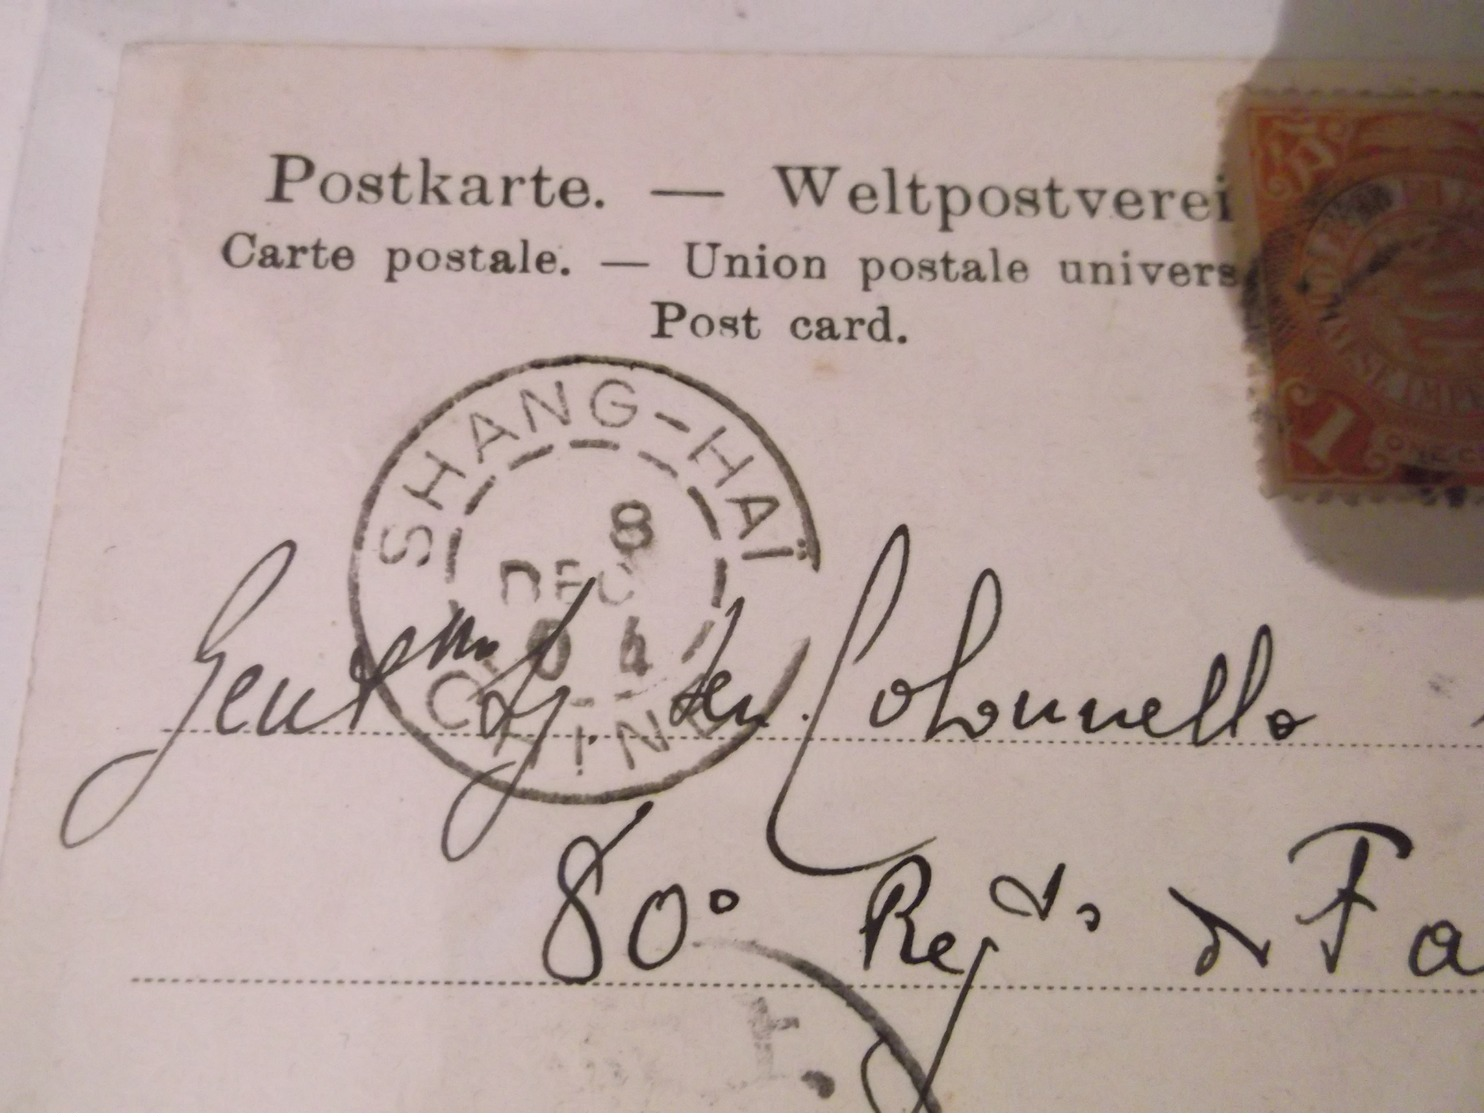 Postkarte. — Weltpostverei
Carte postale. — Union postale univers
Post card.
SHANG-HAÏ
8
DEC
01
CHINE
1
ONE C
Colonnello
80° Reg.to di Fa